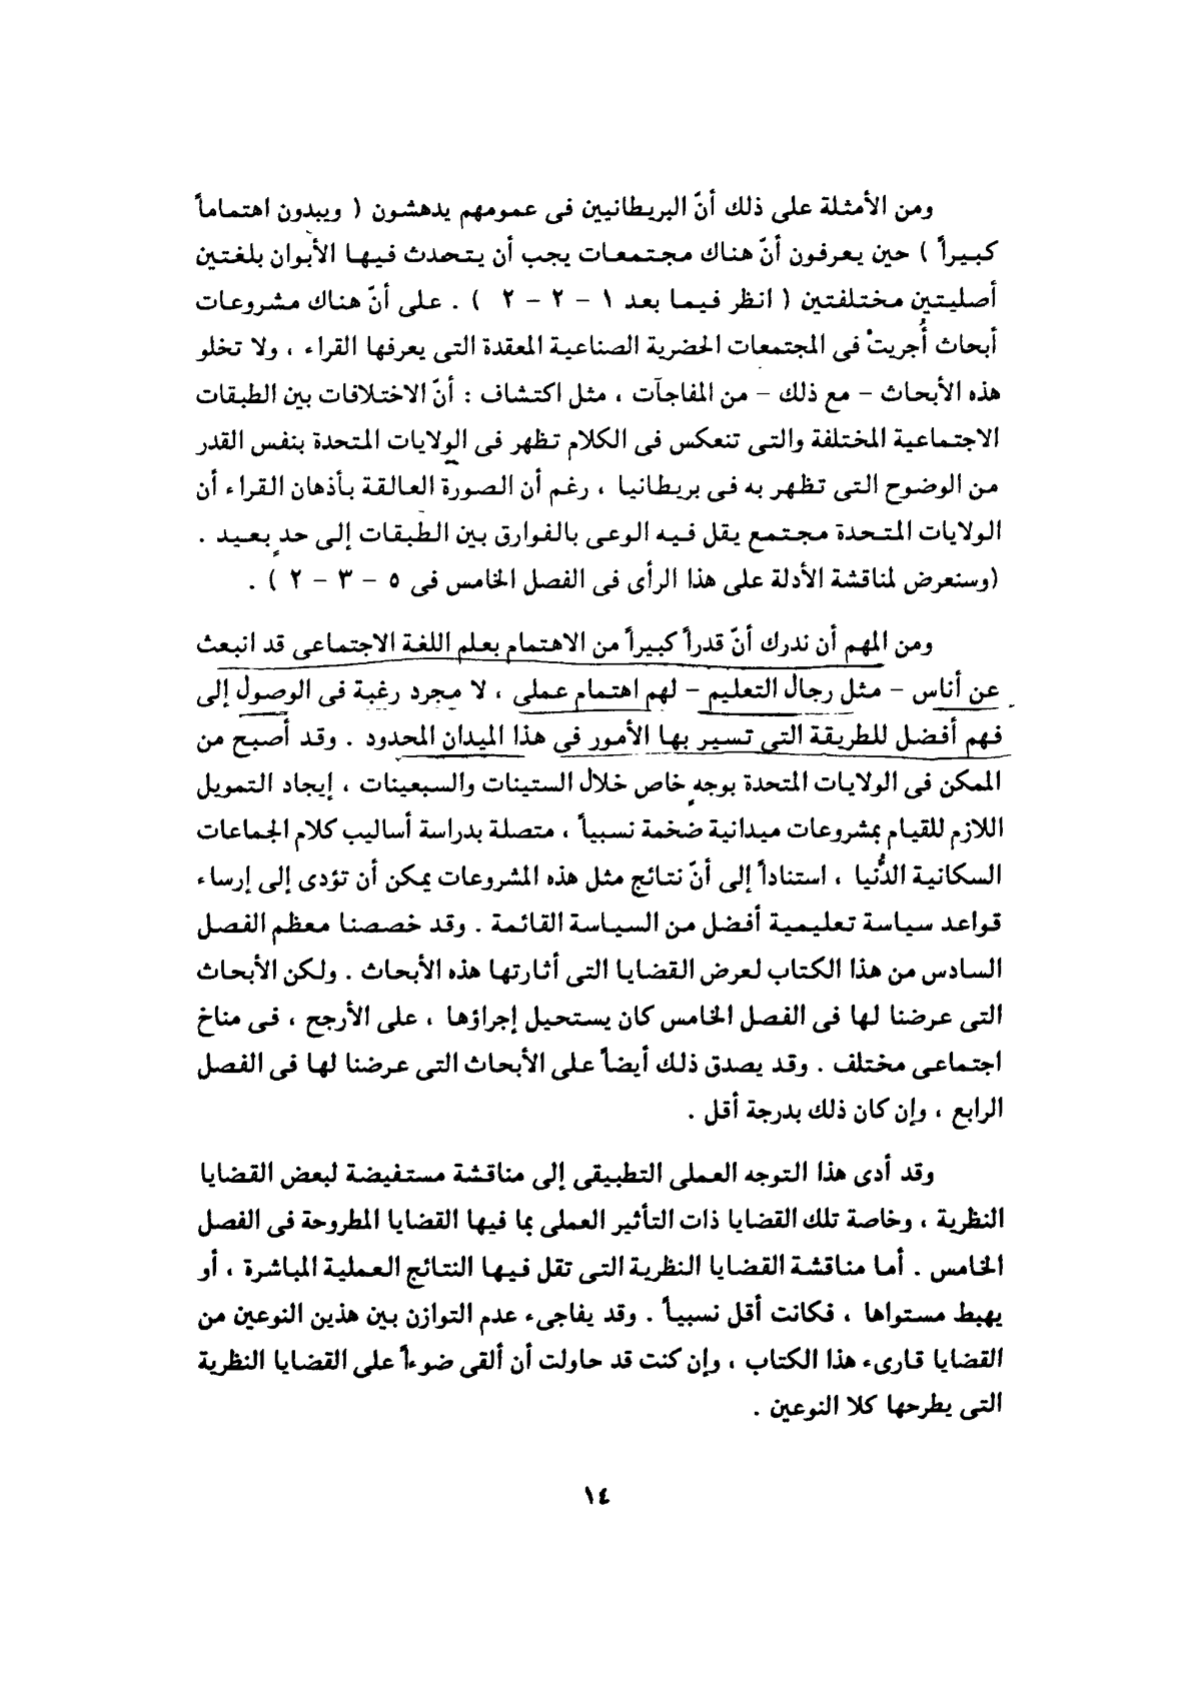 ومن الأمثلة على ذلك أنّ البريطانيين فى عمومهم يدهشون ( ويبدون اهتماماً
كبيراً ) حين يعرفون أنّ هناك مجتمعات يجب أن يتحدث فيها الأبوان بلغتين
أصليتين مختلفتين ( انظر فيما بعد ١ – ٢ – ٢ ) . على أنّ هناك مشروعات
أبحاث أُجريتْ فى المجتمعات الحضرية الصناعية المعقدة التى يعرفها القراء ، ولا تخلو
هذه الأبحاث – مع ذلك – من المفاجآت ، مثل اكتشاف : أنّ الاختلافات بين الطبقات
الاجتماعية المختلفة والتى تنعكس فى الكلام تظهر فى الولايات المتحدة بنفس القدر
من الوضوح التى تظهر به فى بريطانيا ، رغم أن الصورة العالقة بأذهان القراء أن
الولايات المتحدة مجتمع يقل فيه الوعى بالفوارق بين الطبقات إلى حدٍ بعيد .
(وسنعرض لمناقشة الأدلة على هذا الرأى فى الفصل الخامس فى ٥ – ٣ – ٢ ) .
ومن المهم أن ندرك أنّ قدراً كبيراً من الاهتمام بعلم اللغة الاجتماعى قد انبعث
عن أناس – مثل رجال التعليم – لهم اهتمام عملى ، لا مجرد رغبة فى الوصول إلى
فهم أفضل للطريقة التى تسير بها الأمور فى هذا الميدان المحدود . وقد أصبح من
الممكن فى الولايات المتحدة بوجهٍ خاص خلال الستينات والسبعينات ، إيجاد التمويل
اللازم للقيام بمشروعات ميدانية ضخمة نسبياً ، متصلة بدراسة أساليب كلام الجماعات
السكانية الدُّنيا ، استناداً إلى أنّ نتائج مثل هذه المشروعات يمكن أن تؤدى إلى إرساء
قواعد سياسة تعليمية أفضل من السياسة القائمة . وقد خصصنا معظم الفصل
السادس من هذا الكتاب لعرض القضايا التى أثارتها هذه الأبحاث . ولكن الأبحاث
التى عرضنا لها فى الفصل الخامس كان يستحيل إجراؤها ، على الأرجح ، فى مناخ
اجتماعى مختلف . وقد يصدق ذلك أيضاً على الأبحاث التى عرضنا لها فى الفصل
الرابع ، وإن كان ذلك بدرجة أقل .
وقد أدى هذا التوجه العملى التطبيقى إلى مناقشة مستفيضة لبعض القضايا
النظرية ، وخاصة تلك القضايا ذات التأثير العملى بما فيها القضايا المطروحة فى الفصل
الخامس . أما مناقشة القضايا النظرية التى تقل فيها النتائج العملية المباشرة ، أو
يهبط مستواها ، فكانت أقل نسبياً . وقد يفاجىء عدم التوازن بين هذين النوعين من
القضايا قارىء هذا الكتاب ، وإن كنت قد حاولت أن ألقى ضوءاً على القضايا النظرية
التى يطرحها كلا النوعين .
١٤